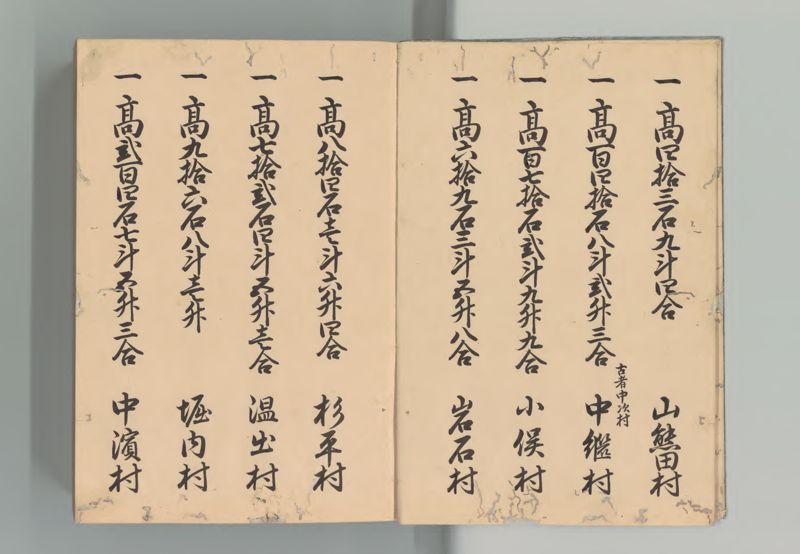 一 高四拾三石九斗四合 山熊田村
一 高百四拾石八斗弐升三合 中繼村
古者中次村
一 高百七拾石弐斗九升九合 小俣村
一 高六拾九石三斗五升八合 岩石村
一 高八拾四石壱斗六升四合 杉平村
一 高七拾弐石四斗五升壱合 温出村
一 高九拾六石八斗壱升 堀内村
一 高弐百四石七斗五升三合 中濱村